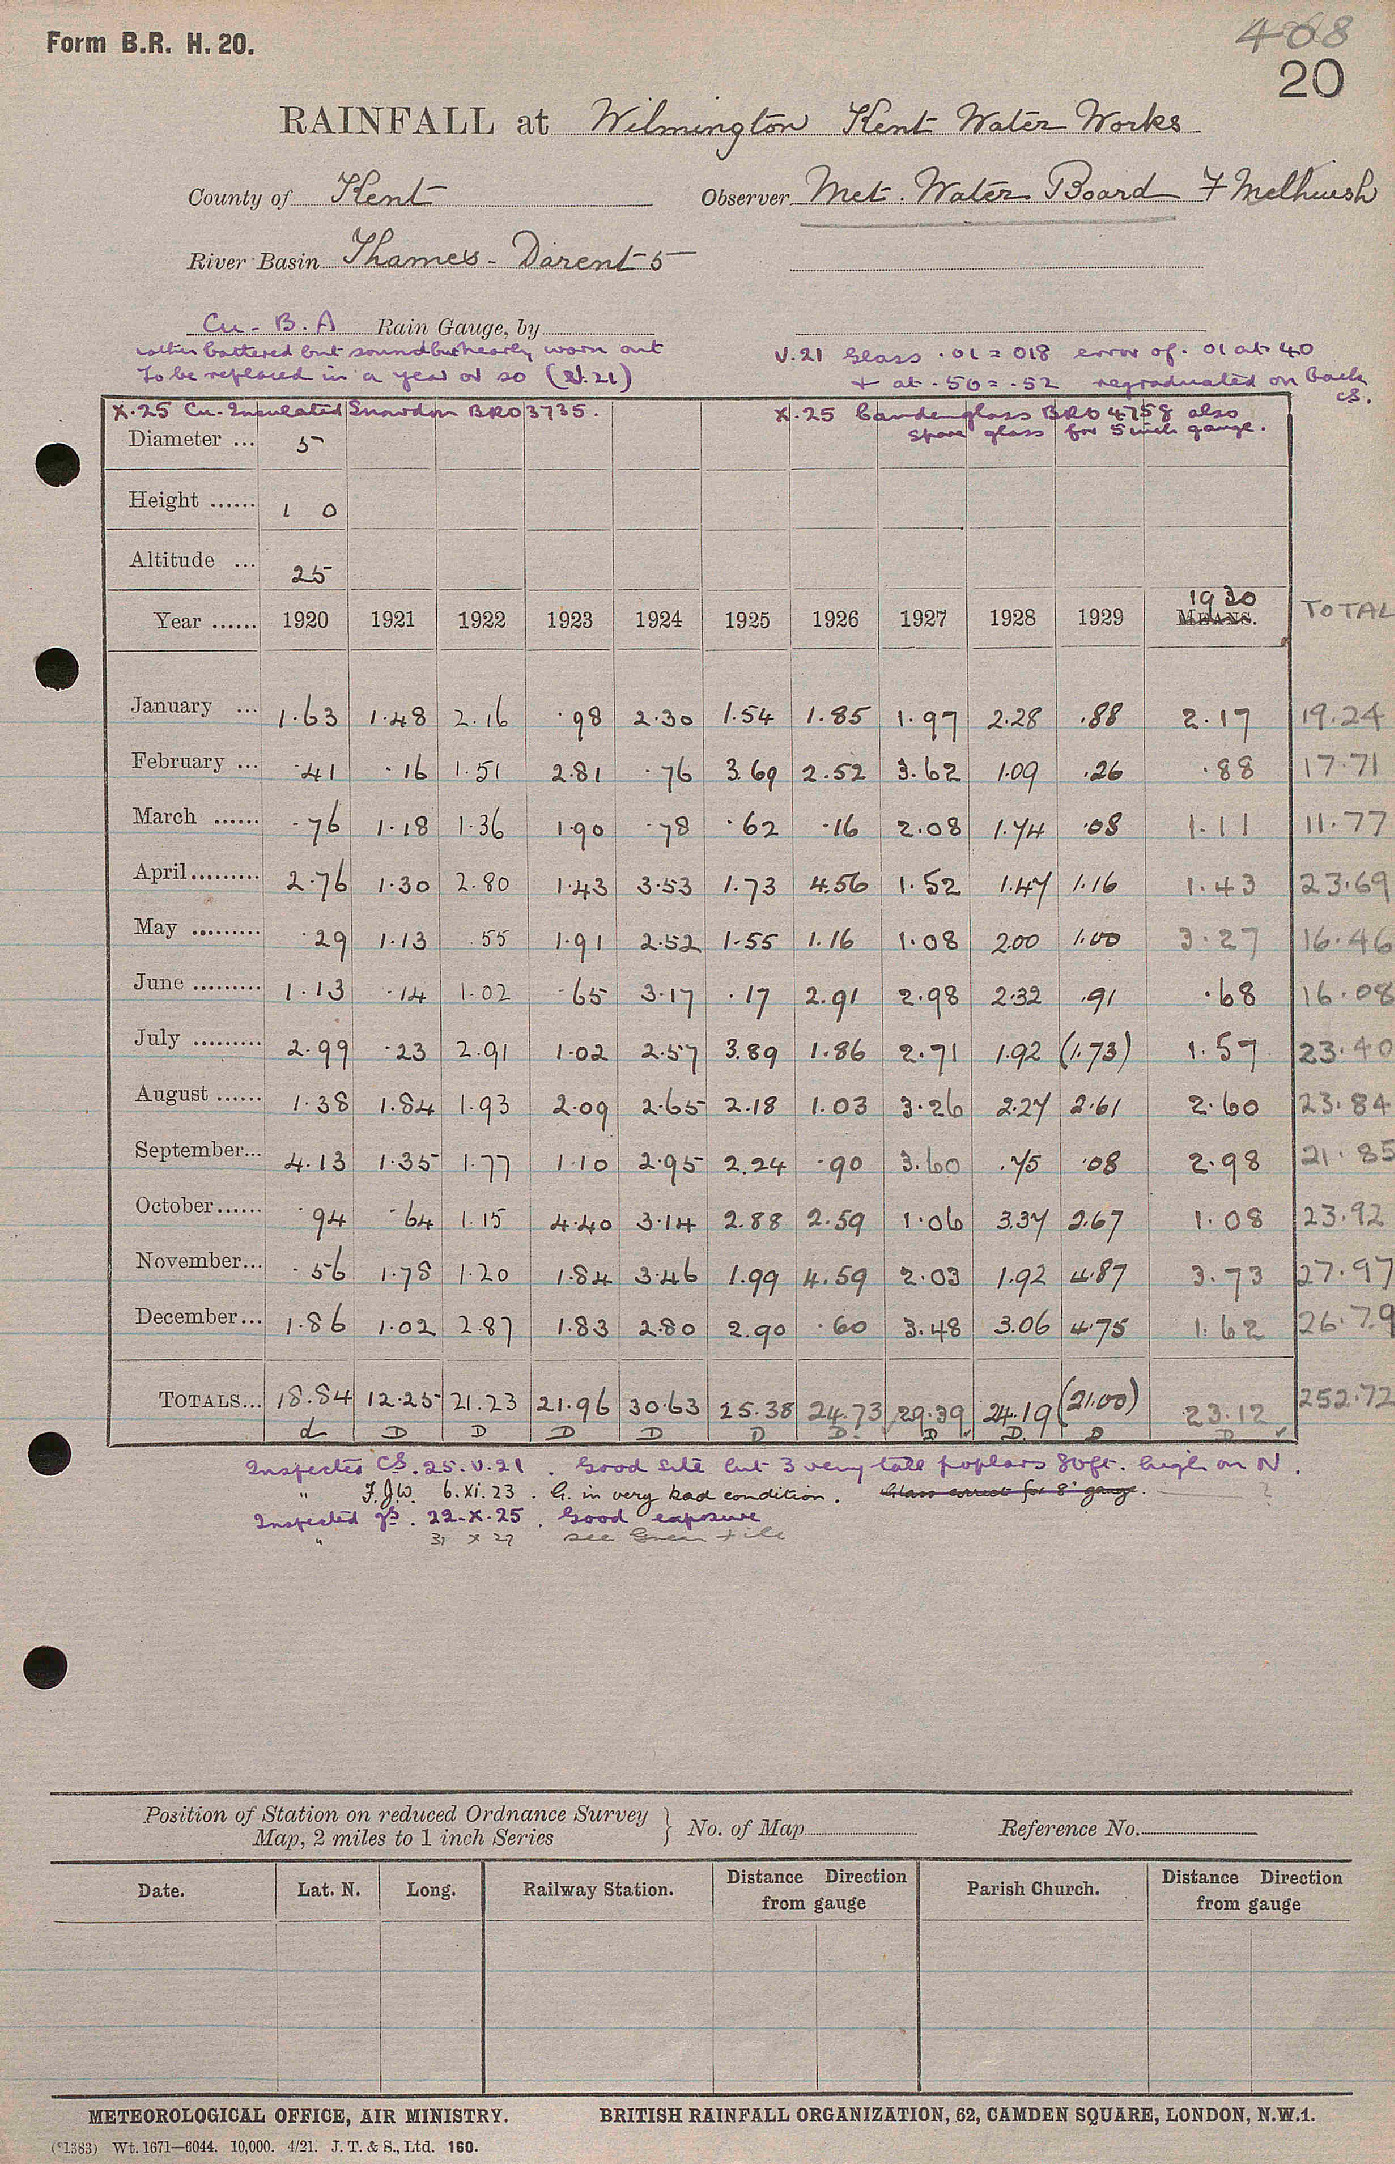 Form B.R. H. 20.
408
20
RAINFALL at Wilmington Kent Water Works
County of Kent Observer Met. Water Board F Melhuish
River Basin Thames - Darent 5
Cu - B.A Rain Gauge, by
rather battered but sound but nearly worn out
To be replaced in a year or so (V.21)
V.21 Glass .01 = 018 error of .01 at .40
+ at .50 = .52 regraduated on back
CS.
X.25 Cu. Insulated Snowdon BRO3735. X.25 Camden glass BRO 4758 also
spare glass for 5 inch gauge.
Diameter ... 5
Height ...... 1 0
Altitude ... 25
Year ...... 1920 1921 1922 1923 1924 1925 1926 1927 1928 1929 1930 MEANS. TOTAL
January ... 1.63 1.48 2.16 .98 2.30 1.54 1.85 1.97 2.28 .88 2.17 19.24
February ... .41 .16 1.51 2.81 .76 3.69 2.52 3.62 1.09 .26 .88 17.71
March ...... .76 1.18 1.36 1.90 .78 .62 .16 2.08 1.74 .08 1.11 11.77
April ......... 2.76 1.30 2.80 1.43 3.53 1.73 4.56 1.52 1.47 1.16 1.43 23.69
May ......... .29 1.13 .55 1.91 2.52 1.55 1.16 1.08 2.00 1.00 3.27 16.46
June ......... 1.13 .14 1.02 .65 3.17 .17 2.91 2.98 2.32 .91 .68 16.08
July ......... 2.99 .23 2.91 1.02 2.57 3.89 1.86 2.71 1.92 (1.73) 1.57 23.40
August ...... 1.38 1.84 1.93 2.09 2.65 2.18 1.03 3.26 2.27 2.61 2.60 23.84
September... 4.13 1.35 1.77 1.10 2.95 2.24 .90 3.60 .75 .08 2.98 21.85
October...... .94 .64 1.15 4.40 3.14 2.88 2.59 1.06 3.37 2.67 1.08 23.92
November... .56 1.78 1.20 1.84 3.46 1.99 4.59 2.03 1.92 4.87 3.73 27.97
December... 1.86 1.02 2.87 1.83 2.80 2.90 .60 3.48 3.06 4.75 1.62 26.79
TOTALS... 18.84 12.25 21.23 21.96 30.63 25.38 24.73 29.39 24.19 (21.00) 23.12 252.72
d D D D D D D. D D. D D
Inspected CS. 25.V.21. Good site but 3 very tall poplars 80ft. high on N.
" F.J.W. 6.XI.23. G. in very bad condition. Glass correct for 8" gauge. ?
Inspected 22.X.25. Good exposure
" 31 X 27 see Green File
Position of Station on reduced Ordnance Survey
Map, 2 miles to 1 inch Series } No. of Map Reference No.
Date. Lat. N. Long. Railway Station. Distance Direction from gauge Parish Church. Distance Direction from gauge
METEOROLOGICAL OFFICE, AIR MINISTRY. BRITISH RAINFALL ORGANIZATION, 62, CAMDEN SQUARE, LONDON, N.W.1.
(*1383) Wt. 1671—6044. 10,000. 4/21. J. T. & S., Ltd. 160.